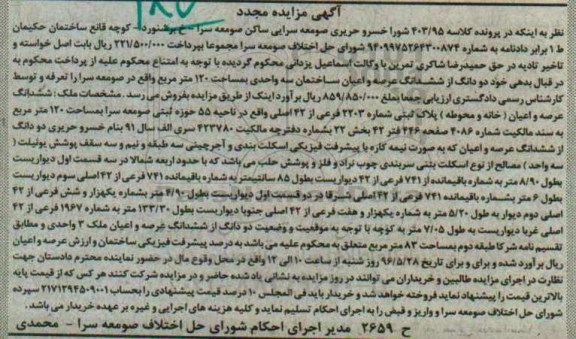 آگهی مزایده مجدد
نظر به اینکه در پرونده کلاسه ۴۰۳/۹۵ شورا خسرو حریری صومعه سرایی ساکن صومعه سرا - خ بجنورد - کوچه قانع ساختمان حکیمان
ط ۱ برابر دادنامه به شماره ۹۴۰۹۹۷۵۲۶۴۳۰۰۸۷۴ شورای حل اختلاف صومعه سرا مجموعا بپرداخت ۲۲۱/۵۰۰/۰۰۰ ریال بابت اصل خواسته و
تاخیر تادیه در حق حمیدرضا شاکری ثمرین با وکالت اسماعیل یزدانی محکوم گردیده با توجه به امتناع محکوم علیه از پرداخت محکوم به
در قبال بدهی خود دو دانگ از ششدانگ عرصه و اعیان ساختمان سه واحدی بمساحت ۱۲۰ متر مربع واقع در صومعه سرا را تعرفه و توسط
کارشناس رسمی دادگستری ارزیابی جمعا بمبلغ ۸۵۹/۸۵۰/۰۰۰ ریال برآورد اینک از طریق مزایده بفروش می رسد . مشخصات ملک : ششدانگ
عرصه و اعیان ( خانه و محوطه ) پلاک ثبتی شماره ۲۲۰۳ فرعی از ۴۲ اصلی واقع در ناحیه ۵۵ حوزه ثبتی صومعه سرا بمساحت ۱۲۰ متر مربع
به سند مالکیت ۴۰۸۶ صفحه ۴۴۶ دفتر ۴۲ بخش ۲۲ بشماره دفترچه مالکیت ۴۲۳۷۸۰ سری الف سال ۹۱ بنام خسرو حریری دو دانگ
از ششدانگ عرصه و اعیان که به صورت نیمه کاره با پیشرفت فیزیکی اسکلت بندی و آجرچینی سه طبقه و نیم و سه سقف پوشش یونولیت (
سه واحد ) مصالح از نوع اسکلت بتنی سربندی چوب نراد و فلز و پوشش حلب می باشد که با حدود اربعه شمالا در سه قسمت اول دیواریست
بطول ۸/۹۰ متر به شماره باقیمانده از ۷۴۱ فرعی از ۴۲ دیواریست بطول ۸۵ سانتیمتر به شماره باقیمانده ۷۴۱ فرعی از ۴۲ اصلی سوم دیواریست
بطول ۶ متر بشماره باقیمانده ۷۴۱ فرعی از ۴۲ اصلی شرقا در دو قسمت اول دیواریست بطول ۴/۹۰ متر بشماره یکهزار و شش فرعی از ۴۲
اصلی دوم دیوار به طول ۵/۲۰ متر به شماره یکهزار و هفت فرعی از ۴۲ اصلی جنوبا دیواریست بطول ۱۳۳/۳۰ متر به شماره ۱۹۶۷ فرعی از ۴۲
اصلی غربا دیواریست به طول ۷/۰۵ متر به کوچه با توجه به موقعیت و وضعیت دو دانگ از ششدانگ عرصه و اعیان ملک ۳ واحدی و مطابق
تقسیم نامه شرکا طبقه دوم بمساحت ۸۳ متر مربع متعلق به محکوم علیه می باشد به درصد پیشرفت فیزیکی ساختمان و ارزش عرصه و اعیان
ریال برآورد شده و برای و برای تاریخ ۹۶/۵/۲۸ روز شنبه از ساعت ۱۰ الی ۱۲ واقع در محل وقوع مال در حضور نماینده محترم دادستان جهت
نظارت در اجرای مزایده طالبین و خریداران می توانند در روز مزایده به نشانی یاد شده حاضر و در مزایده شرکت کنند هر کس که از قیمت پایه
بالاترین قیمت را پیشنهاد نماید فروخته خواهد شد و خریدار باید فی المجلس ۱۰ درصد قیمت پیشنهادی را بحساب ۲۱۷۱۲۹۴۵۰۹۰۰۱ سپرده
شورای حل اختلاف صومعه سرا و واریز و قبض را به اجرای احکام تسلیم نماید و کلیه هزینه های اجرایی و غیره بر عهده خریدار می باشد .
ح ۲۶۵۹ مدیر اجرای احکام شورای حل اختلاف صومعه سرا - محمدی